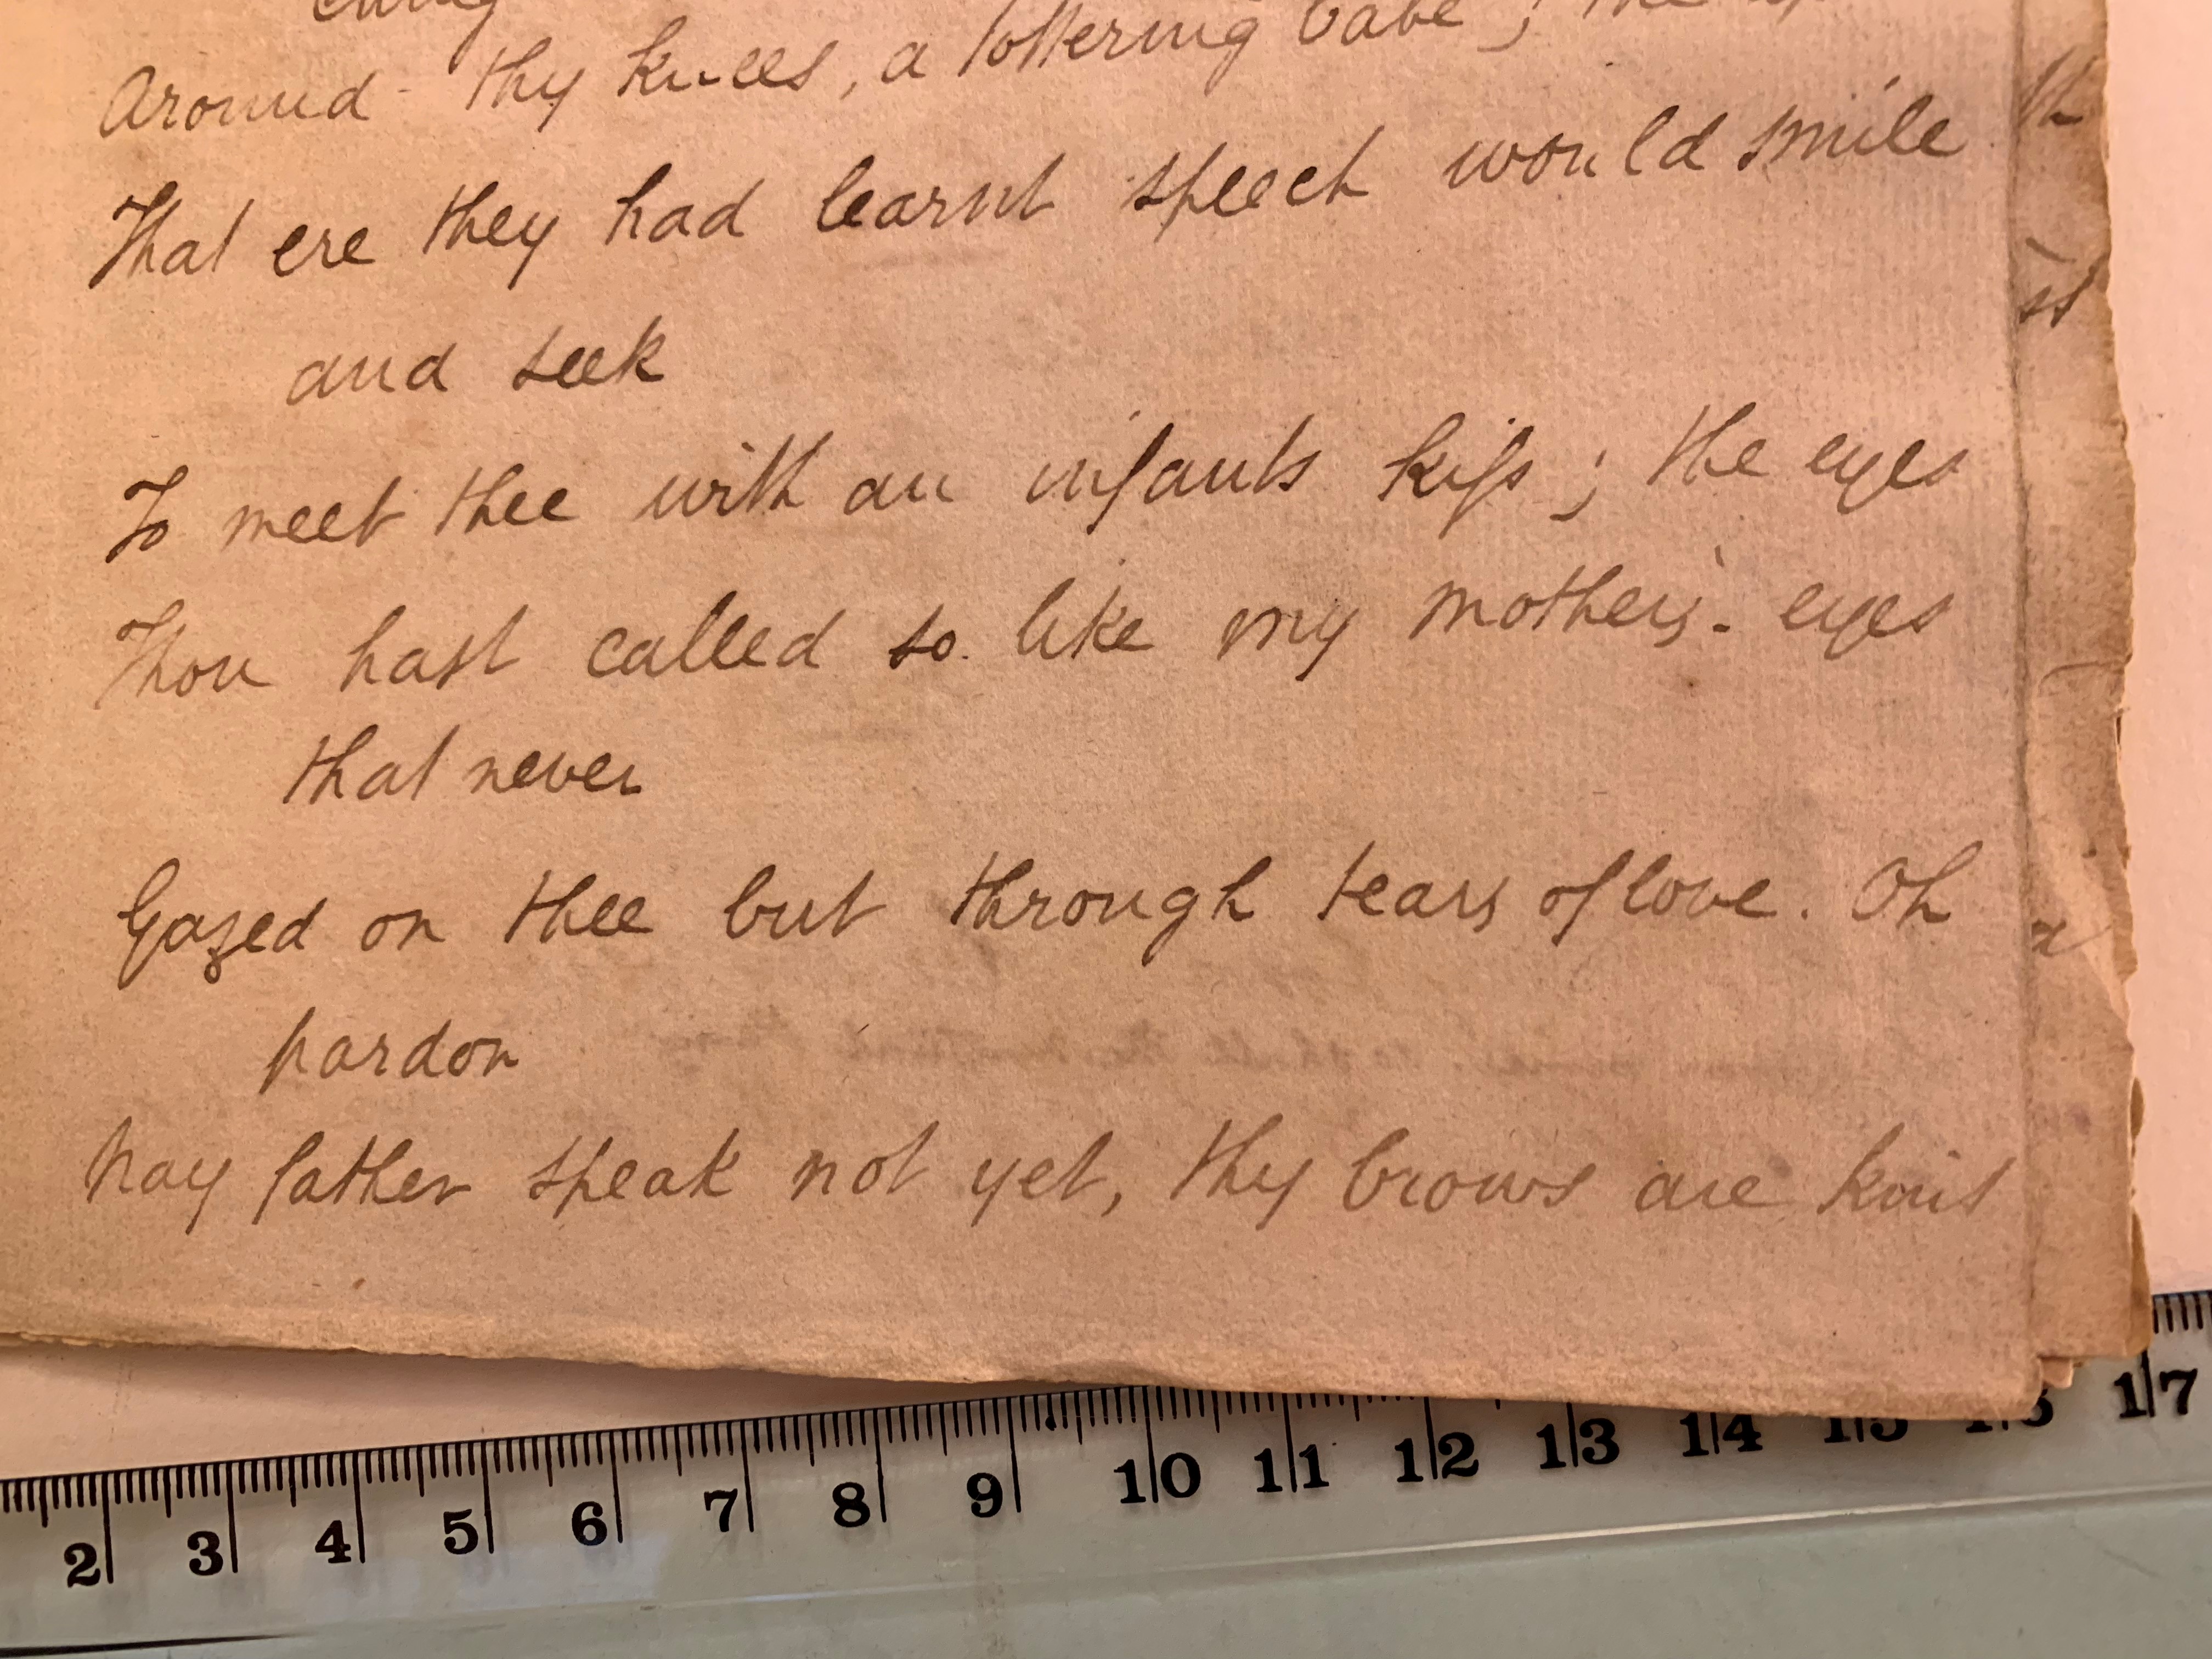 cling
Around thy knees, a tottering babe; the
That ere they had learnt speech would smile
and seek
To meet thee with an infants kiss; the eyes
Thou hast called so like my mother's eyes
that never
Gazed on thee but through tears of love. Oh
pardon
Nay father speak not yet, thy brows are knit
2 3 4 5 6 7 8 9 10 11 12 13 14 15 16 17